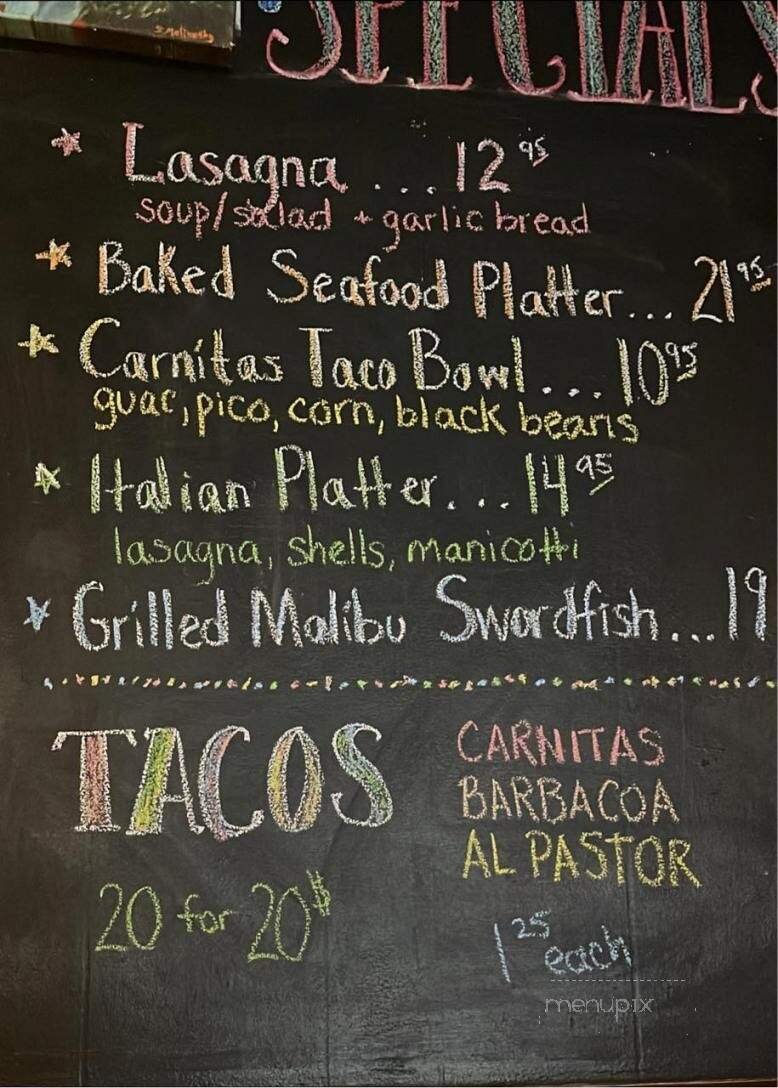 SPECIALS
Lasagna ... 12 95
soup/salad + garlic bread
Baked Seafood Platter... 21 95
Carnitas Taco Bowl.... 10 95
guac, pico, corn, black beans
Italian Platter.... 14 95
lasagna, shells, manicotti
Grilled Malibu Swordfish...19
TACOS
20 for 20$
CARNITAS
BARBACOA
AL PASTOR
1 25 each
menupix